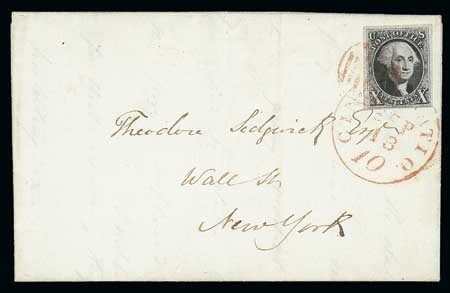 POST OFFICE
TEN CENTS
10
Theodore Sedgwick Esq
Wall St
New York